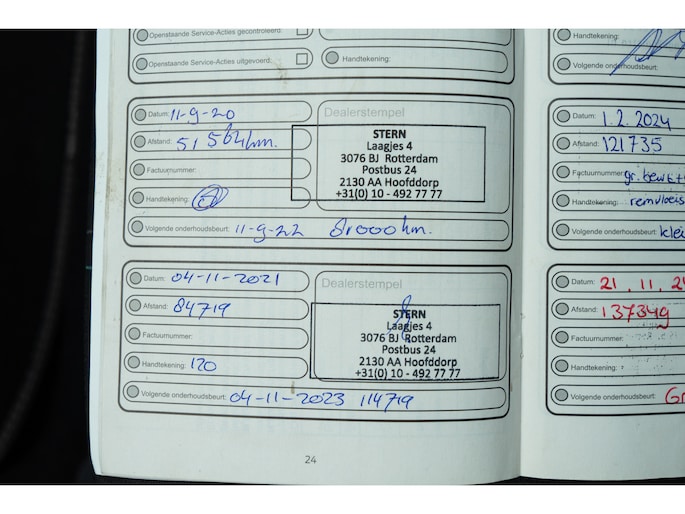 Openstaande Service-Acties gecontroleerd:
Openstaande Service-Acties uitgevoerd:
Handtekening:
Datum: 11-9-20
Afstand: 51564km.
Factuurnummer:
Handtekening:
Volgende onderhoudsbeurt: 11-9-22 81000km.
Dealerstempel
STERN
Laagjes 4
3076 BJ Rotterdam
Postbus 24
2130 AA Hoofddorp
+31(0) 10 - 492 77 77
Datum: 04-11-2021
Afstand: 84719
Factuurnummer:
Handtekening: 120
Volgende onderhoudsbeurt: 04-11-2023 114719
Dealerstempel
STERN
Laagjes 4
3076 BJ Rotterdam
Postbus 24
2130 AA Hoofddorp
+31(0) 10 - 492 77 77
24
Handtekening:
Volgende onderhoudsbeurt:
Datum: 1.2.2024
Afstand: 121735
Factuurnummer: gr.
Handtekening: remvloeis
Volgende onderhoudsbeurt: klei
Datum: 21.11.24
Afstand: 137349
Factuurnummer:
Handtekening:
Volgende onderhoudsbeurt: Gr